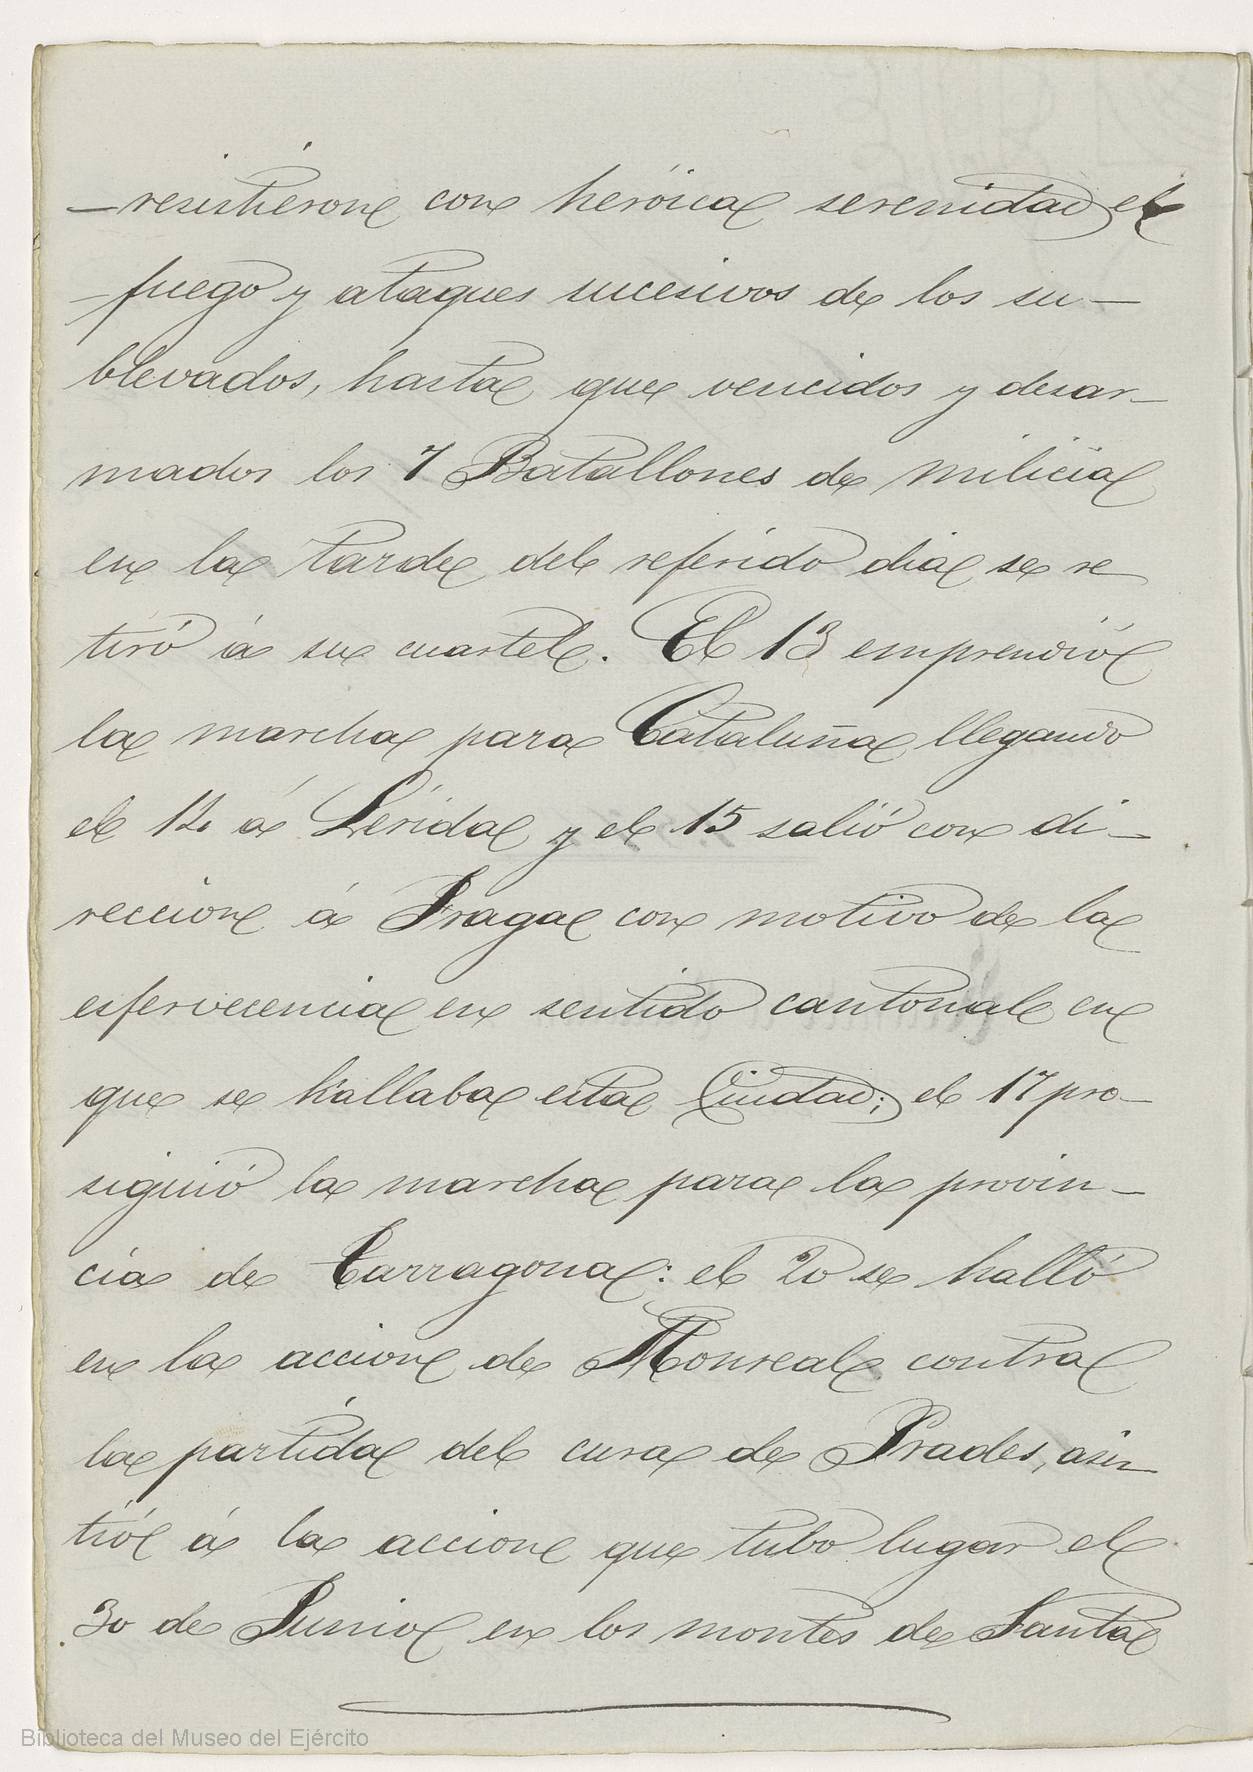 resistieron con heróica serenidad el
fuego y ataques sucesivos de los su-
blevados, hasta que vencidos y desar-
mados los 7 Batallones de milicia
en la tarde del referido dia se re
tiró á su cuartel. El 13 emprendió
la marcha para Cataluña llegando
el 14 á Lérida y el 15 salió con di-
reccion á Fraga con motivo de la
esfervecencia en sentido cantonal en
que se hallaba esta Ciudad; el 17 pro-
siguió la marcha para la provin-
cia de Tarragona: el 20 se halló
en la accion de Monreal contra
la partida del cura de Prades, asis-
tió á la accion que tubo lugar el
30 de Junio en los montes de Santa
Biblioteca del Museo del Ejército